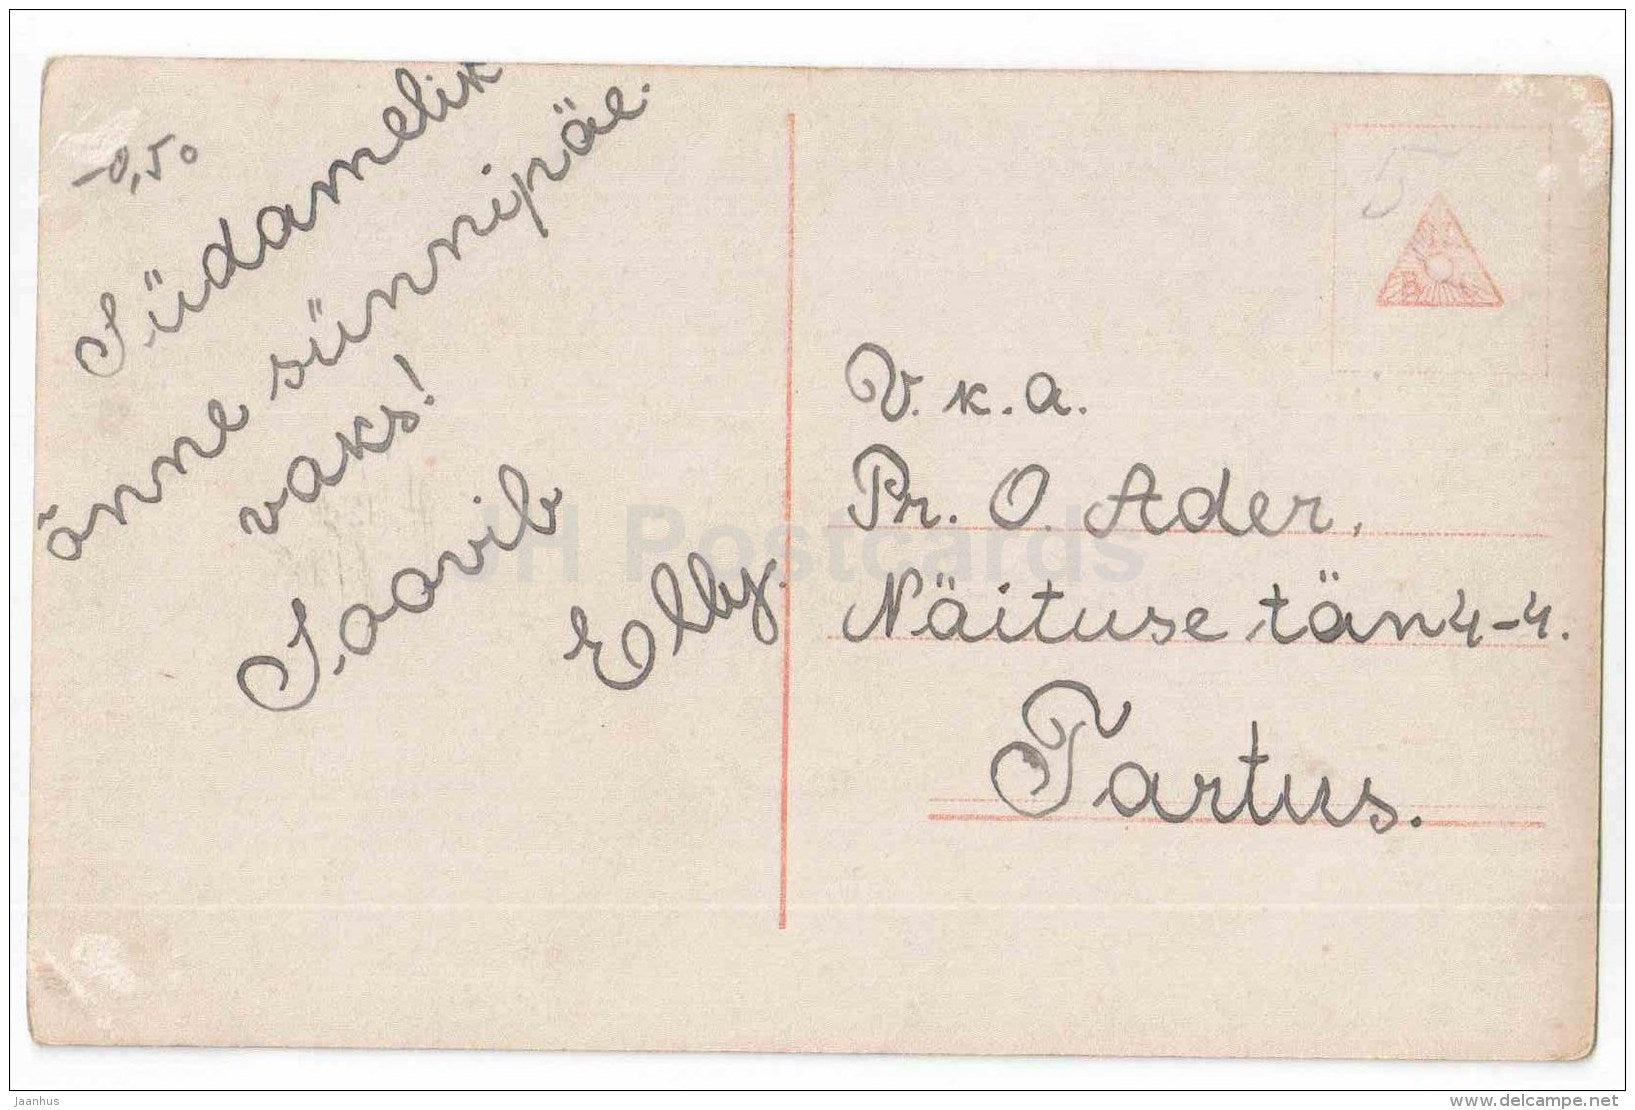 -0,50
Südamelik
õnne sünnipäe-
vaks!
Soovib
Elby.
5
V. k. a.
Pr. O. Ader,
Näituse tän 4-4.
Tartus.
JH Postcards
Jaanhus
www.delcampe.net